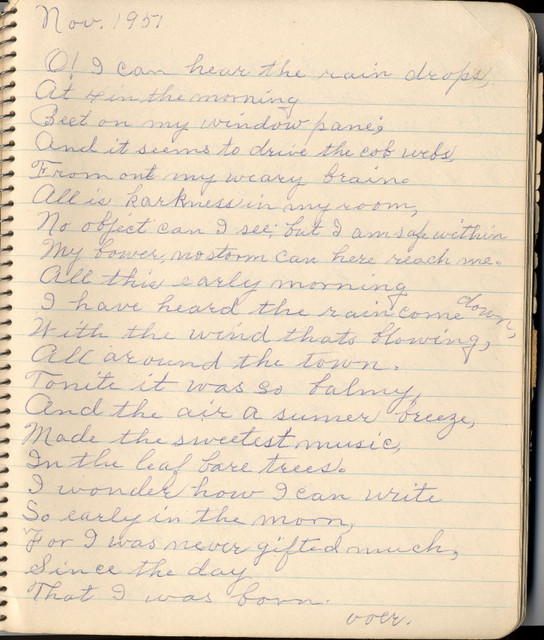 Nov. 1951
O! I can hear the rain drops,
At 4 in the morning
Beet on my window pane;
And it seems to drive the cob webs,
From out my weary brain.
All is karkness in my room,
No object can I see; but I am safe within
My bower, no storm can here reach me.
All this early morning
I have heard the rain come down,
With the wind thats blowing,
All around the town.
Tonite it was so balmy,
And the air a sumer breeze,
Made the sweetest music,
In the leaf bare trees.
I wonder how I can write
So early in the morn,
For I was never gifted much,
Since the day
That I was born.
over.